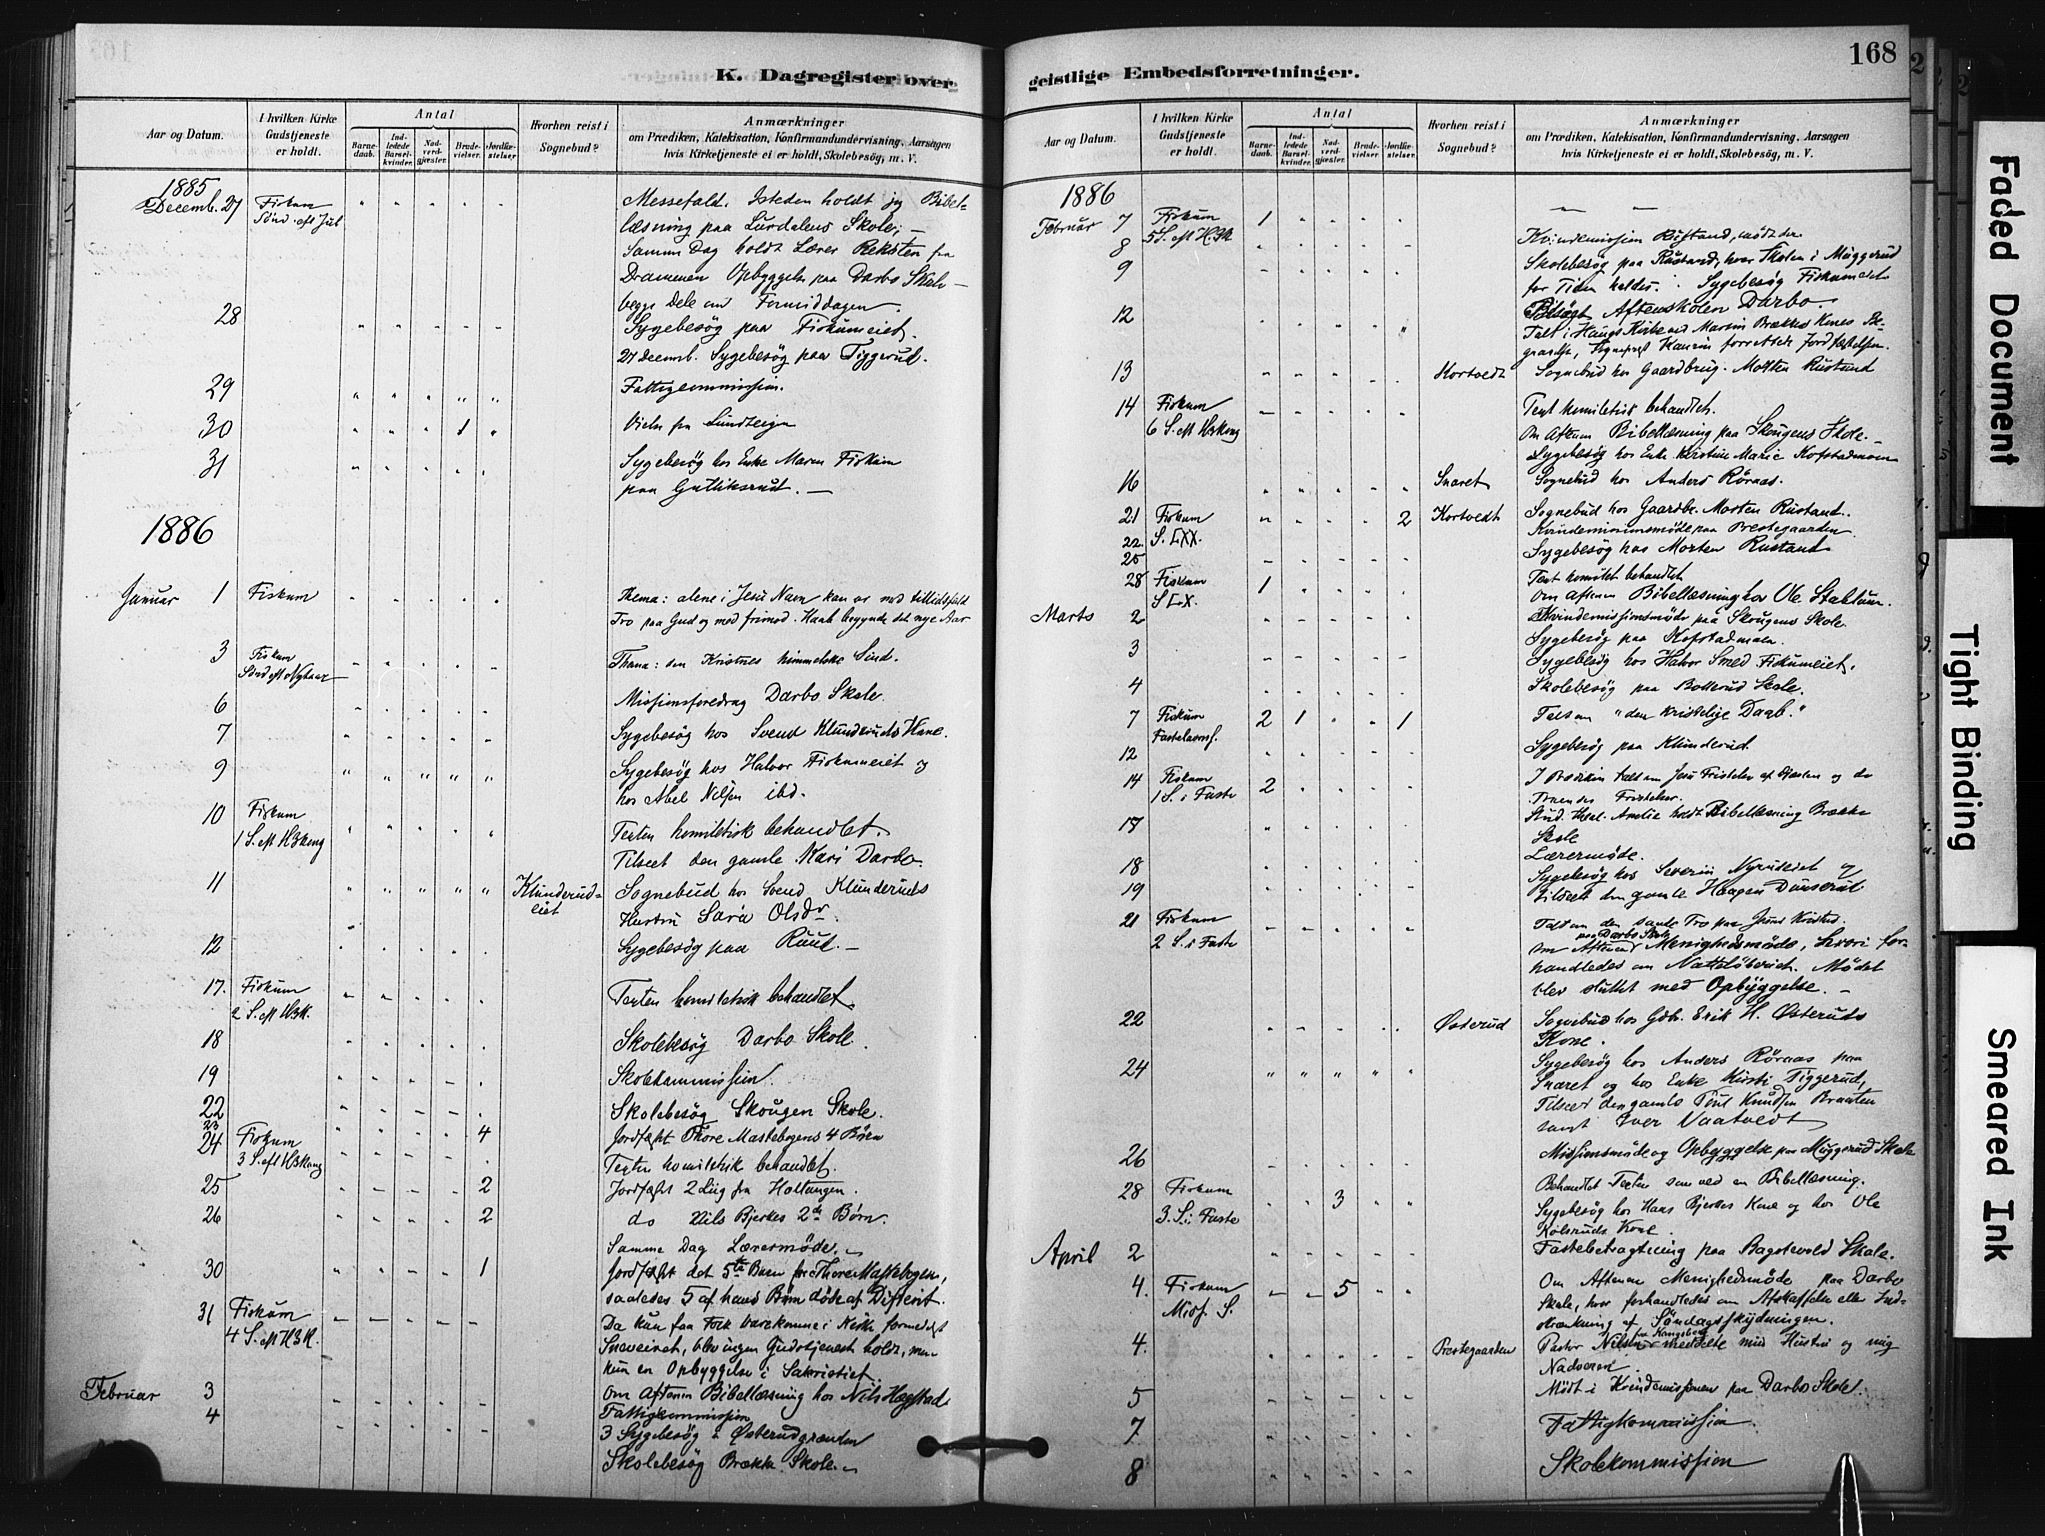 168
K. Dagregister over
geistlige Embedsforretninger.
Aar og Datum.
I hvilken Kirke Gudstjeneste er holdt.
Antal
Barnedaab.
Indledede Barselkvinder.
Nadverdgjæster.
Brudevielser.
Jordfæstelser.
Hvorhen reist i Sognebud?
Anmærkninger
om Prædiken, Katekisation, Konfirmandundervisning, Aarsagen
hvis Kirketjeneste ei er holdt, Skolebesøg, m. V.
1885
Decemb. 27 Fiskum Messefald. Isteden holdt jeg Bibel-
Sønd. eft Jul læsning paa Lurdalens Skole; —
Samme Dag holdt Lærer Reksten fra
Drammen Opbyggelse paa Darbo Skole —
begge Dele om Formiddagen.
28 Sygebesøg paa Fiskumeiet.
27 Decemb. Sygebesøg paa Tiggerud.
29 Fattigcommission.
30 1 Vielse fra Lundteigen
31 Sygebesøg hos Enke Maren Fiskum
paa Gutliksrud. —
1886
Januar 1 Fiskum Thema: alene i Jesu Navn kan vi med tillidsfuld
Tro paa Gud og med frimod. Haab begynde det nye Aar
3 Fiskum
Sønd eft Nytaar Thema: den Kristnes himmelske Sind.
6 Missionsforedrag Darbo Skole
7 Sygebesøg hos Svend Klunderuds Kone.
9 Sygebesøg hos Halvor Fiskumeiet og
hos Abel Nilsen ibd.
10 Fiskum
1 S. eft H3kong Texten homiletisk behandlet.
Tilseet den gamle Kari Darbo
11 Klunderud-
eiet Sognebud hos Svend Klunderuds
Hustru Sara Olsdr.
12 Sygebesøg paa Ruud. —
17. Fiskum
2 S. eft H3K. Texten homiletisk behandlet.
18 Skolebesøg Darbo Skole.
19 Skolekommission.
22 Skolebesøg Skougen Skole.
23 4 Jordfæst Thore Mastebogens 4 Børn
24 Fiskum
3 S. eft H3kong Texten homiletisk behandlet.
25 2 Jordfæst 2 Liig fra Holtangen.
26 2 do Nils Bjerkes 2de Børn.
Samme Dag Lærermøde.
30 1 Jordfæst det 5te Barn for Thore Mastebogen,
saaledes 5 af hans Børn døde af Difterit.
31 Fiskum
4 S. eft H3K. Da kun faa Folk vare komne i Kirke formedelst
Sneveiret, blev ingen Gudstjeneste holdt, men
kun en Opbyggelse i Sakristiet.
Februar 3 Om Aftenen Bibellæsning hos Nils Hagstad
4 Fattigkommission
3 Sygebesøg i Østerudgrænden
Skolebesøg Brække Skole.
1886
Februar 7 Fiskum 1
5 S. eft H3K
8 Kvindemission Rustand, mødt der.
9 Skolebesøg paa Rustand, hvor Skolen i Muggerud
for Tiden holdes. Sygebesøg Fiskumeiet
Besøgt Aftenskolen Darbo.
12 Talt i Haugs Kirke ved Martin Brækkes Kones Be-
gravelse, Sognepræst Kaurin forrettede Jordfæstelsen.
13 Kortvedt Sognebud hos Gaardbrug. Morten Rustand
14 Fiskum
6 S. eft H3kong Text homiletisk behandlet.
Om Aftenen Bibellæsning paa Skougens Skole. —
Sygebesøg hos Enke Kirstine Marie Kofstadmoen
16 Snaret Sognebud hos Anders Röraas.
21 Fiskum
S. LXX. 2 Kortvedt Sognebud hos Gaardbr. Morten Rustand.
22 Kvindemissionsmøde paa Prestegaarden
25 Sygebesøg hos Morten Rustand
28 Fiskum
S LX. 1 Text homilet behandlet
Om Aftenen Bibellæsning hos Ole Stablum.
Marts 2 Kvindemissionsmøde paa Skougens Skole.
Sygebesøg paa Kofstadmoen.
3 Sygebesøg hos Halvor Smed Fiskumeiet.
4 Skolebesøg paa Bollerud Skole.
7 Fiskum
Fastelavns. 2 1 1 Talt om "den kristelige Daab."
12 Sygebesøg paa Klunderud.
14 Fiskum
1 S. i Faste 2 I Prædiken talt om Jesu Fristelse af Djævelen og de
Troendes Fristelser.
17 Stud. theol. Amelie holdt Bibellæsning Brække
Skole
18 Lærermøde.
19 Sygebesøg hos Severin Nyrudeiet og
tilseet den gamle Haagen Dunserud
21 Fiskum
2 S. i Faste Talt om den sande Tro paa Jesus Kristus.
Om Aftenen paa Darbo Skole Menighedsmøde, hvori for-
handledes om Natteløberiet. Mødet
blev sluttet med Opbyggelse. —
22 Østerud Sognebud hos Gdbr. Erik H. Østeruds
Kone.
24 Sygebesøg hos Anders Röraas paa
Snaret og hos Enke Kirsti Tiggerud,
Tilseet den gamle Knudsen Braaten
samt Iver Vaatvedt
26 Missionsmøde og Opbyggelse paa Muggerud Skole
28 Fiskum
3. S. i Faste 3 Behandlet Texten som ved en Bibellæsning.
Sygebesøg hos Hans Bjerkes Kone og hos Ole
Kolsruds Kone.
April 2 Fastebetragtning paa Bagstevold Skole.
4. Fiskum
Midf. S. 5 Om Aftenen Menighedsmøde paa Darbo
Skole, hvor forhandledes om Afskaffelse eller Ind-
skrænkning af Søndagsskydningen.
4. Prestegaarden Pastor Nilsen fra Kongsberg meddelte min Hustru og mig
Nadveren.
5 Mødt i Kvindemissionen paa Darbo Skole.
7 Fattigkommission.
8 Skolekommission
Faded Document
Tight Binding
Smeared Ink